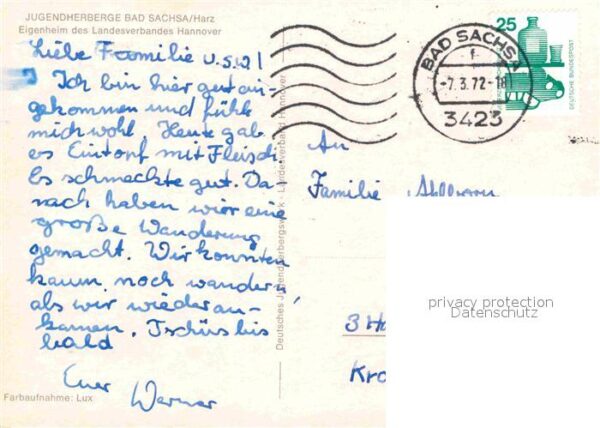 JUGENDHERBERGE BAD SACHSA/Harz
Eigenheim des Landesverbandes Hannover
Liebe Familie u.s.w!
Ich bin hier gut an-
gekommen und fühle
mich wohl. Heute gab
es Eintopf mit Fleisch.
Es schmeckte gut. Da-
nach haben wir eine
große Wanderung
gemacht. Wir konnten
kaum noch wandern
als wir wieder an-
kamen. Tschüs bis
bald
Euer Werner
Farbaufnahme: Lux
Deutsches Jugendherbergswerk - Landesverband Hannover
25
DEUTSCHE BUNDESPOST
BAD SACHSA
f
-7.3.72-18
3423
An
Familie
3 Ha
Kro
privacy protection
Datenschutz